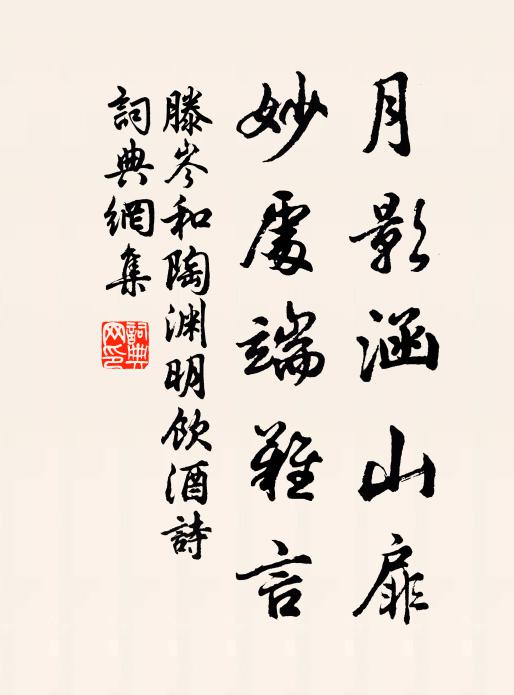 月影涵山扉
妙處端難言
滕岑和陶淵明飲酒詩
詞典網集
詞典
网印